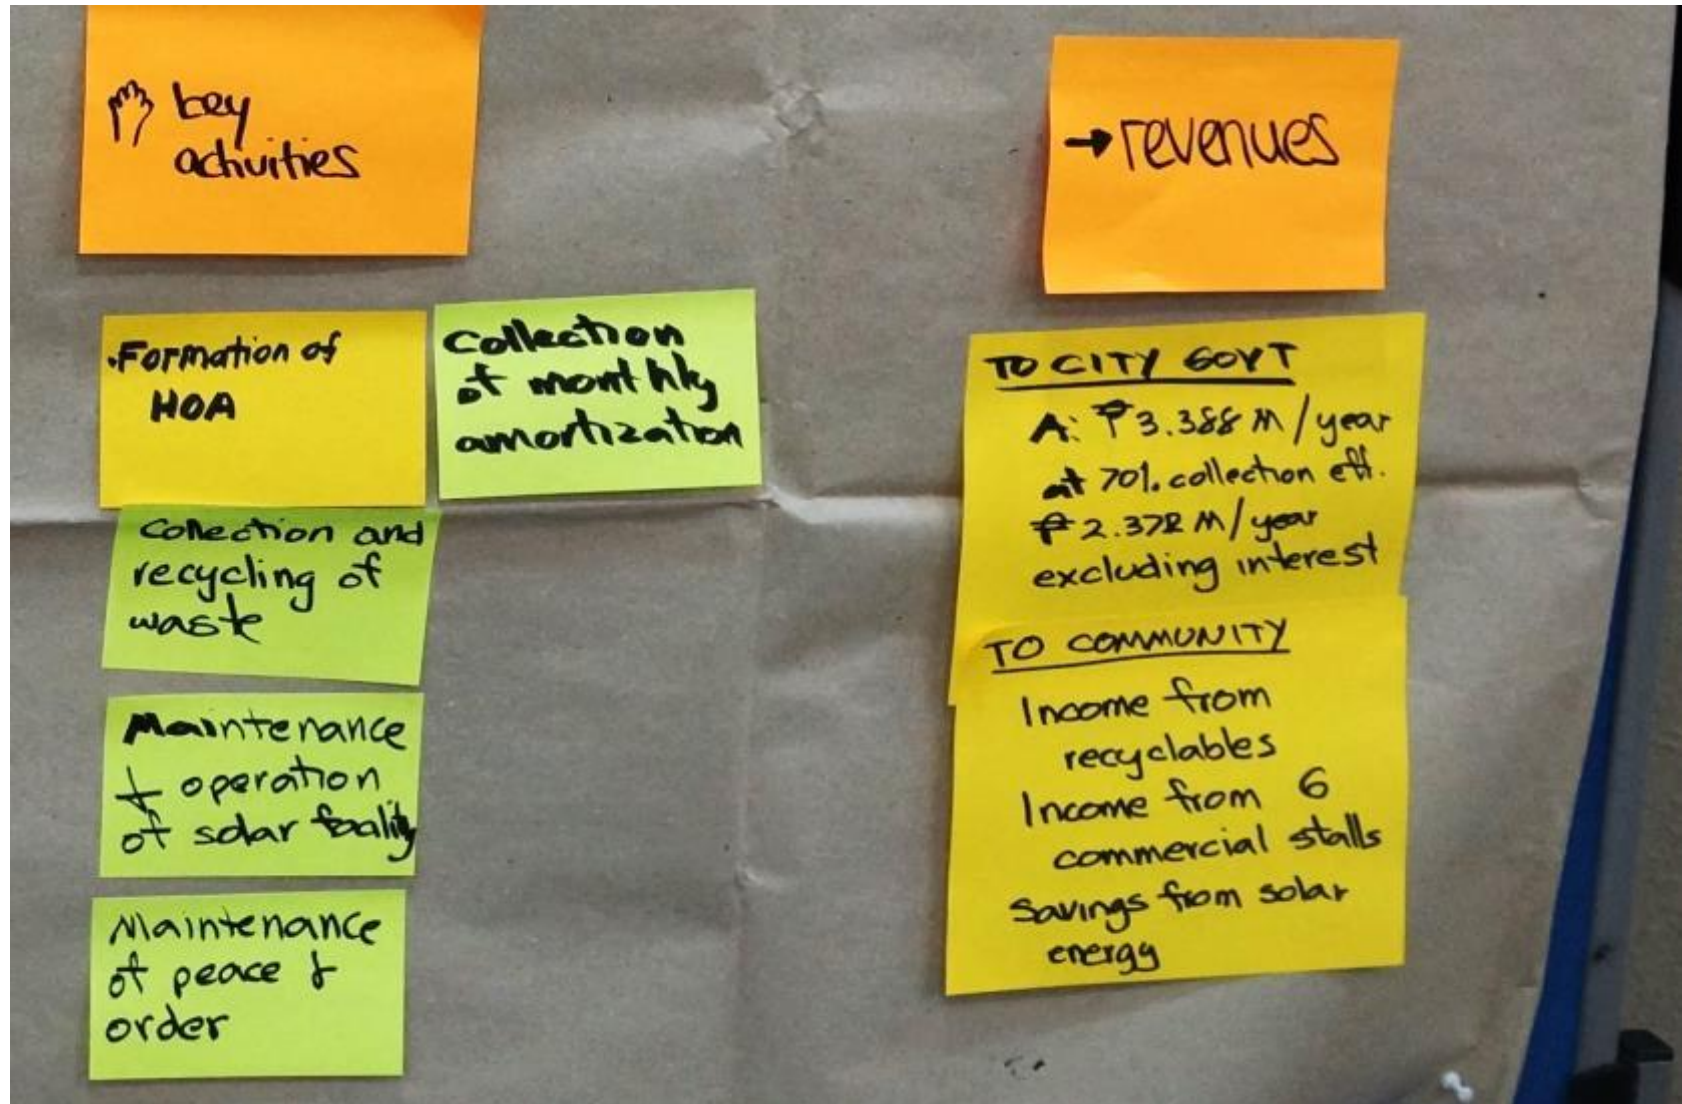 key
activities
.Formation of
HOA
Collection
of monthly
amortization
Collection and
recycling of
waste
Maintenance
& operation
of solar facility
Maintenance
of peace &
order
→ revenues
TO CITY GOVT
A: ₱3.388 M/year
at 70%. collection eff.
₱2.372 M/year
excluding interest
TO COMMUNITY
Income from
recyclables
Income from 6
commercial stalls
Savings from solar
energy